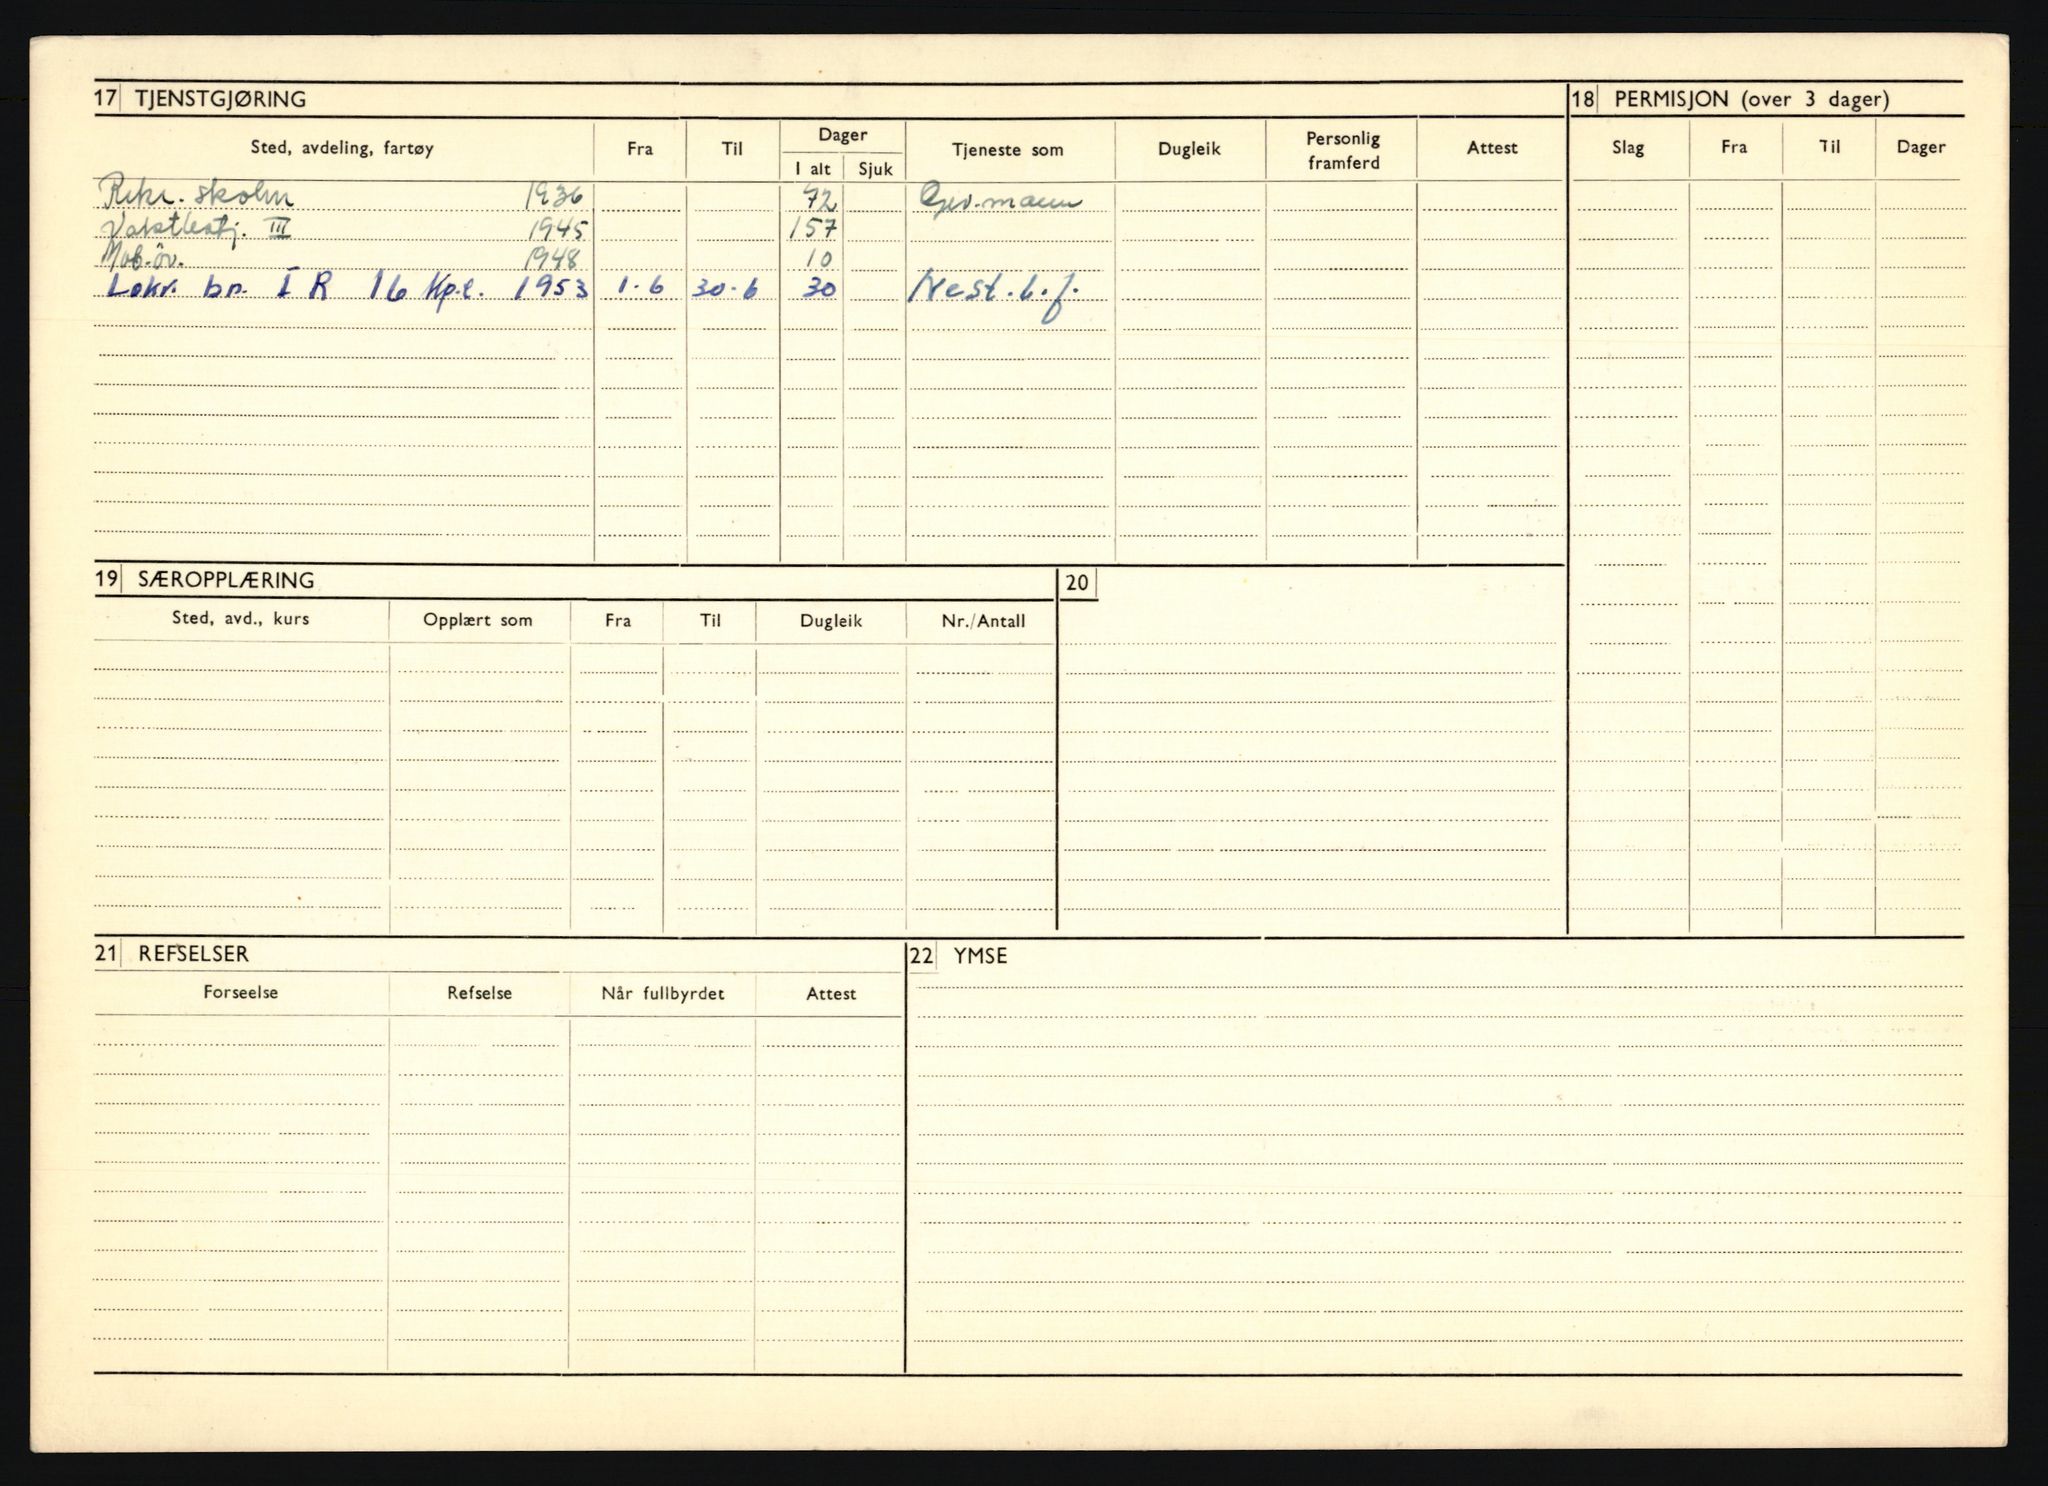 17 TJENSTGJØRING
18 PERMISJON (over 3 dager)
Sted, avdeling, fartøy Fra Til Dager Tjeneste som Dugleik Personlig framferd Attest
I alt Sjuk
Slag Fra Til Dager
Rekr. skolen 1936 72 Gev.mann
III 1945 157
Mob.öv. 1948 10
Lokv. bn. I R 16 Kp.t. 1953 1-6 30-6 30 Nest.l.f.
19 SÆROPPLÆRING
20
Sted, avd., kurs Opplært som Fra Til Dugleik Nr./Antall
21 REFSELSER
22 YMSE
Forseelse Refselse Når fullbyrdet Attest